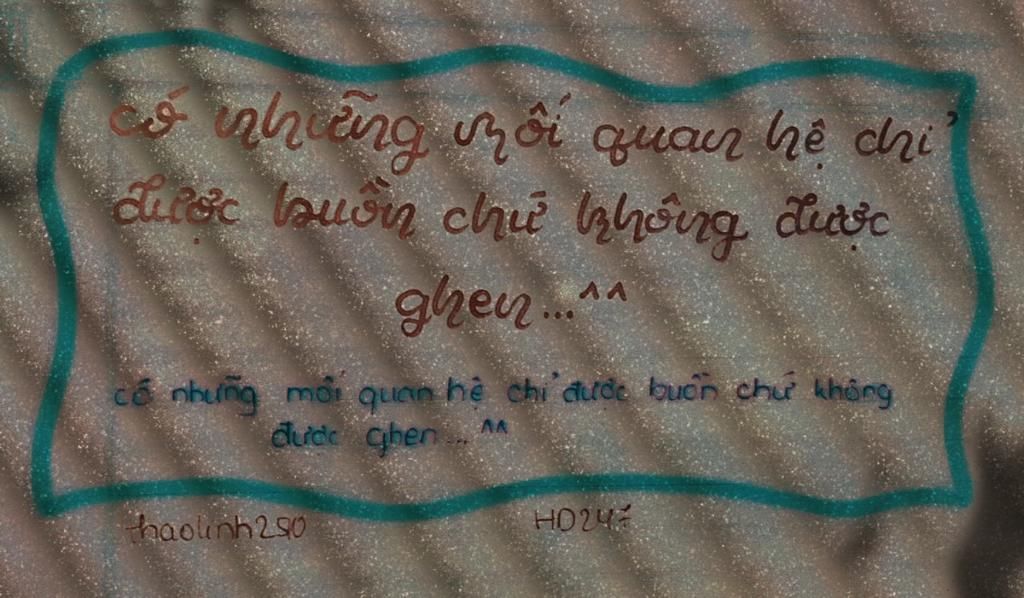 có những mối quan hệ chỉ
được buồn chứ không được
ghen...^^
có những mối quan hệ chỉ được buồn chứ không
được ghen...^^
thaolinh250
HD247